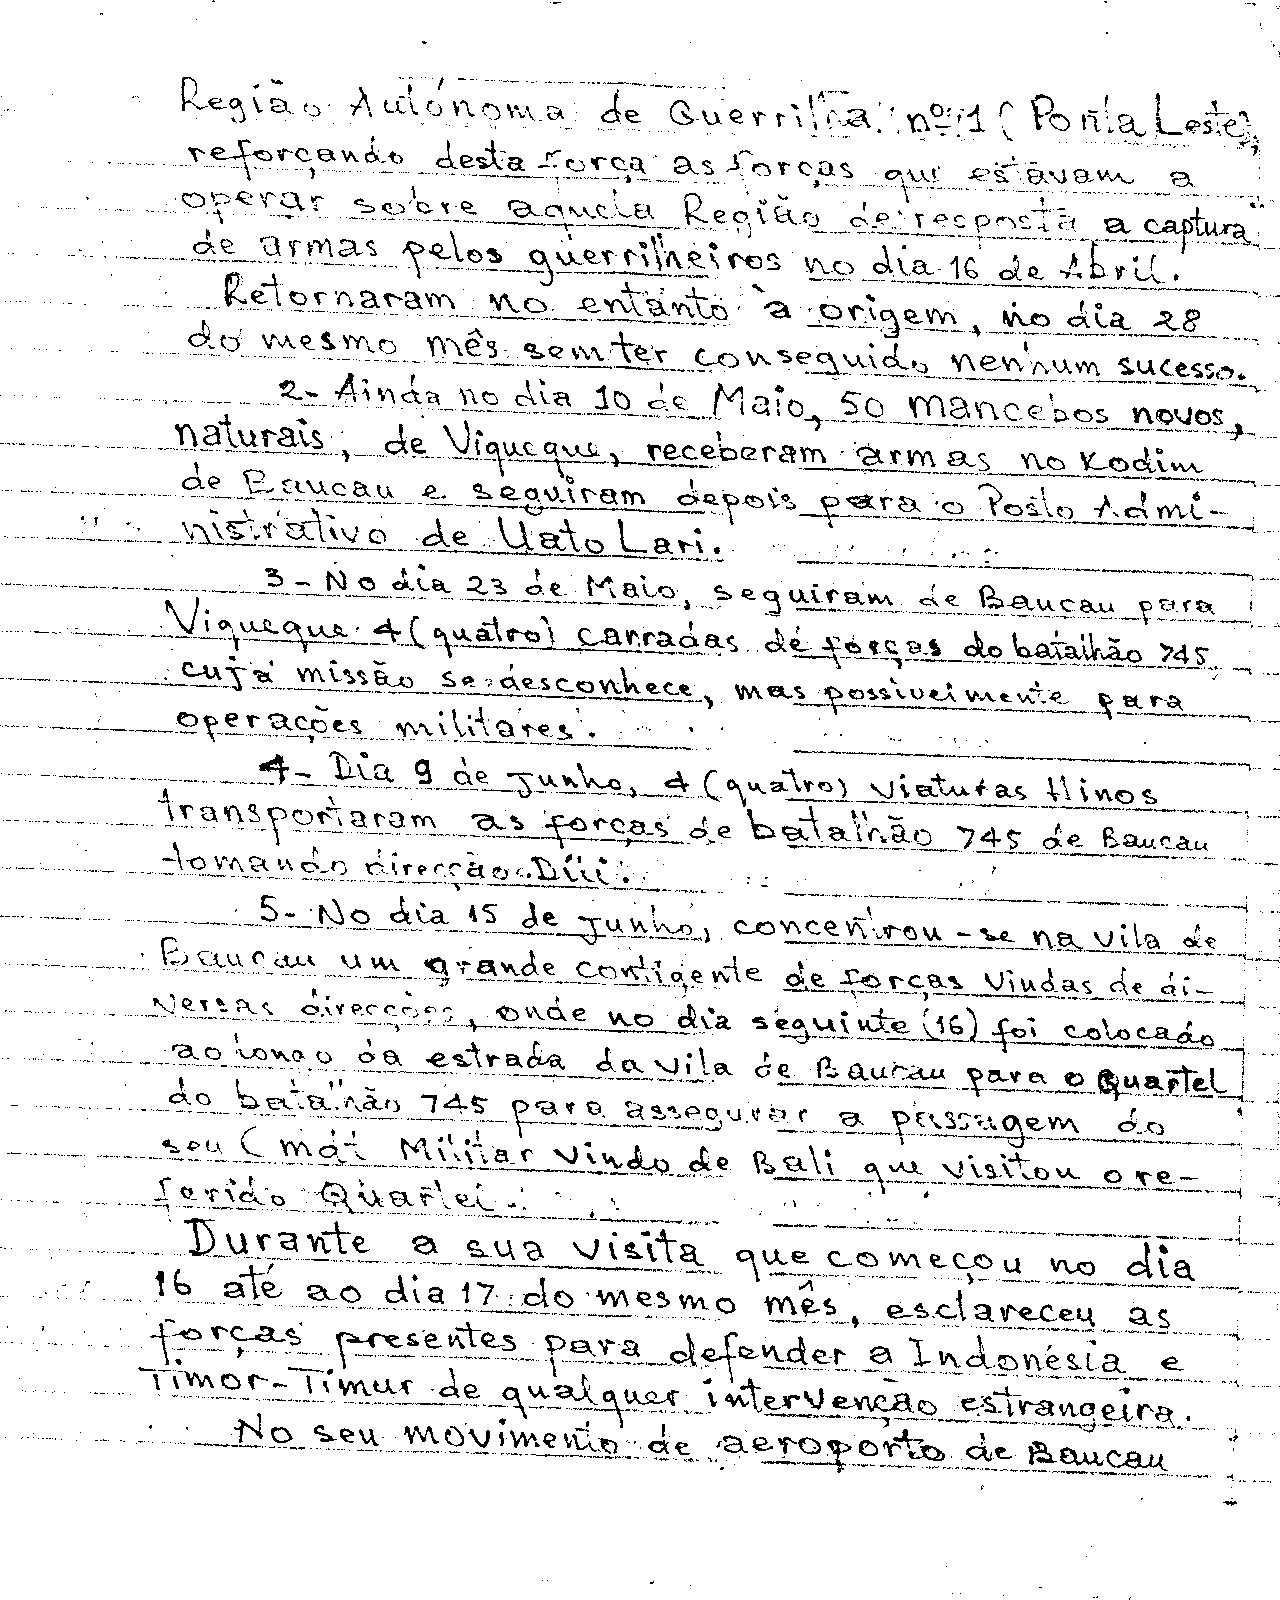 Região Autónoma de Guerrilha nº 1 (Ponta Leste),
reforçando desta força as forças que estavam a
operar sobre aquela Região de resposta a captura
de armas pelos guerrilheiros no dia 16 de Abril.
Retornaram no entanto à origem, no dia 28
do mesmo mês sem ter conseguido nenhum sucesso.
2- Ainda no dia 10 de Maio, 50 mancebos novos,
naturais, de Viqueque, receberam armas no Kodim
de Baucau e seguiram depois para o Posto Admi-
nistrativo de Uato Lari.
3- No dia 23 de Maio, seguiram de Baucau para
Viqueque 4 (quatro) carradas de forças do batalhão 745,
cuja missão se desconhece, mas possivelmente para
operações militares.
4- Dia 9 de Junho, 4 (quatro) viaturas Hinos
transportaram as forças de batalhão 745 de Baucau
tomando direcção Díli.
5- No dia 15 de Junho, concentrou-se na vila de
Baucau um grande contigente de forças vindas de di-
versas direcções, onde no dia seguinte (16) foi colocado
ao longo da estrada da vila de Baucau para o Quartel
do batalhão 745 para assegurar a passagem do
seu Cmdt Militar vindo de Bali que visitou o re-
ferido Quartel.
Durante a sua visita que começou no dia
16 até ao dia 17 do mesmo mês, esclareceu as
forças presentes para defender a Indonésia e
Timor-Timur de qualquer intervenção estrangeira.
No seu movimento de aeroporto de Baucau